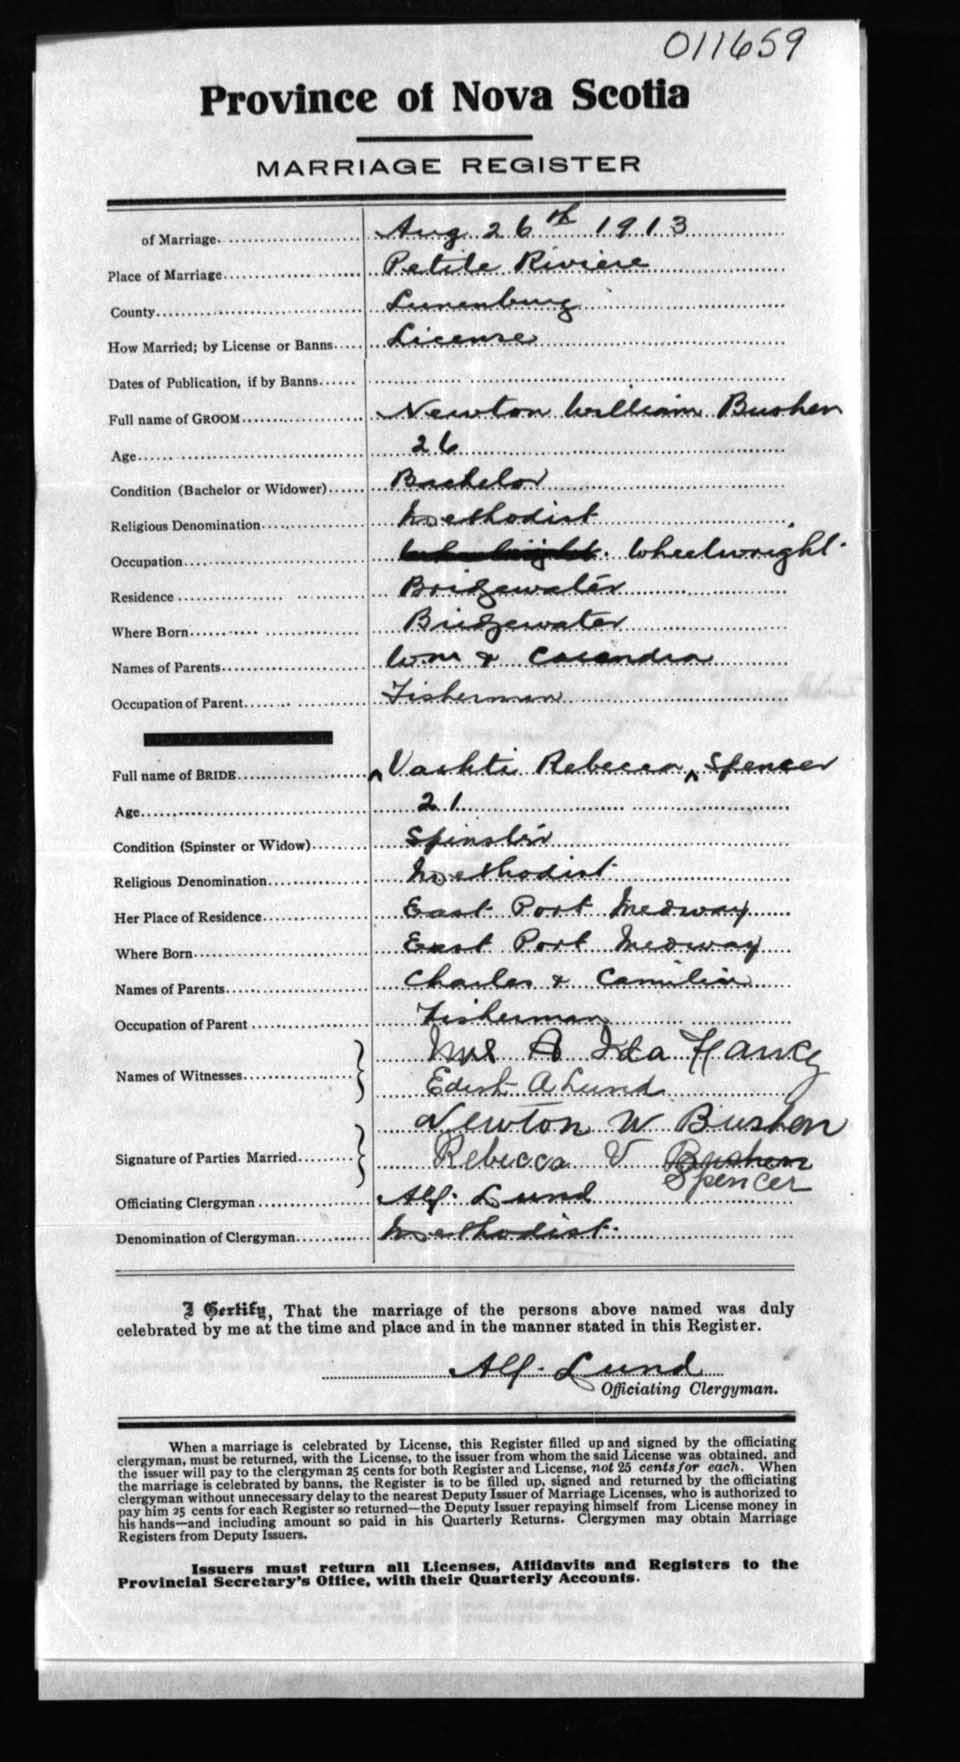 011659
Province of Nova Scotia
MARRIAGE REGISTER
of Marriage. Aug 26th 1913
Place of Marriage Petite Riviere
County Lunenburg
How Married; by License or Banns License
Dates of Publication, if by Banns
Full name of GROOM Newton William Bushen
Age 26
Condition (Bachelor or Widower) Bachelor
Religious Denomination Methodist
Occupation Wheelwright.
Residence Bridgewater
Where Born Bridgewater
Names of Parents Wm & Casandra
Occupation of Parent Fisherman
Full name of BRIDE Vashti Rebecca Spencer
Age 21
Condition (Spinster or Widow) Spinster
Religious Denomination Methodist
Her Place of Residence East Port Medway
Where Born East Port Medway
Names of Parents Charles & Camilia
Occupation of Parent Fisherman
Names of Witnesses Mrs A Ida
Edith A Lund
Newton W Bushen
Signature of Parties Married Rebecca V Bushen
Spencer
Officiating Clergyman Alf. Lund
Denomination of Clergyman Methodist.
I Certify, That the marriage of the persons above named was duly
celebrated by me at the time and place and in the manner stated in this Register.
Alf. Lund
Officiating Clergyman.
When a marriage is celebrated by License, this Register filled up and signed by the officiating
clergyman, must be returned, with the License, to the issuer from whom the said License was obtained, and
the issuer will pay to the clergyman 25 cents for both Register and License, not 25 cents for each. When
the marriage is celebrated by banns, the Register is to be filled up, signed and returned by the officiating
clergyman without unnecessary delay to the nearest Deputy Issuer of Marriage Licenses, who is authorized to
pay him 25 cents for each Register so returned—the Deputy Issuer repaying himself from License money in
his hands—and including amount so paid in his Quarterly Returns. Clergymen may obtain Marriage
Registers from Deputy Issuers.
Issuers must return all Licenses, Affidavits and Registers to the
Provincial Secretary's Office, with their Quarterly Accounts.